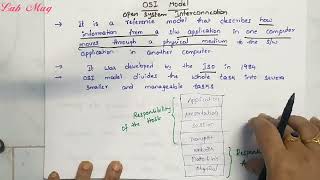 Lab Mug
OSI Model
Open System Interconnection
→ It is a reference model that describes how
information from a s/w application in one computer
moves through a physical medium to the s/w
application in another computer.
→ It was developed by the ISO in 1984
→ OSI model divides the whole task into seven
smaller and manageable tasks
Application
Presentation
Session
Transport
Network
Data link
Physical
Responsibility
of the host
Responsib